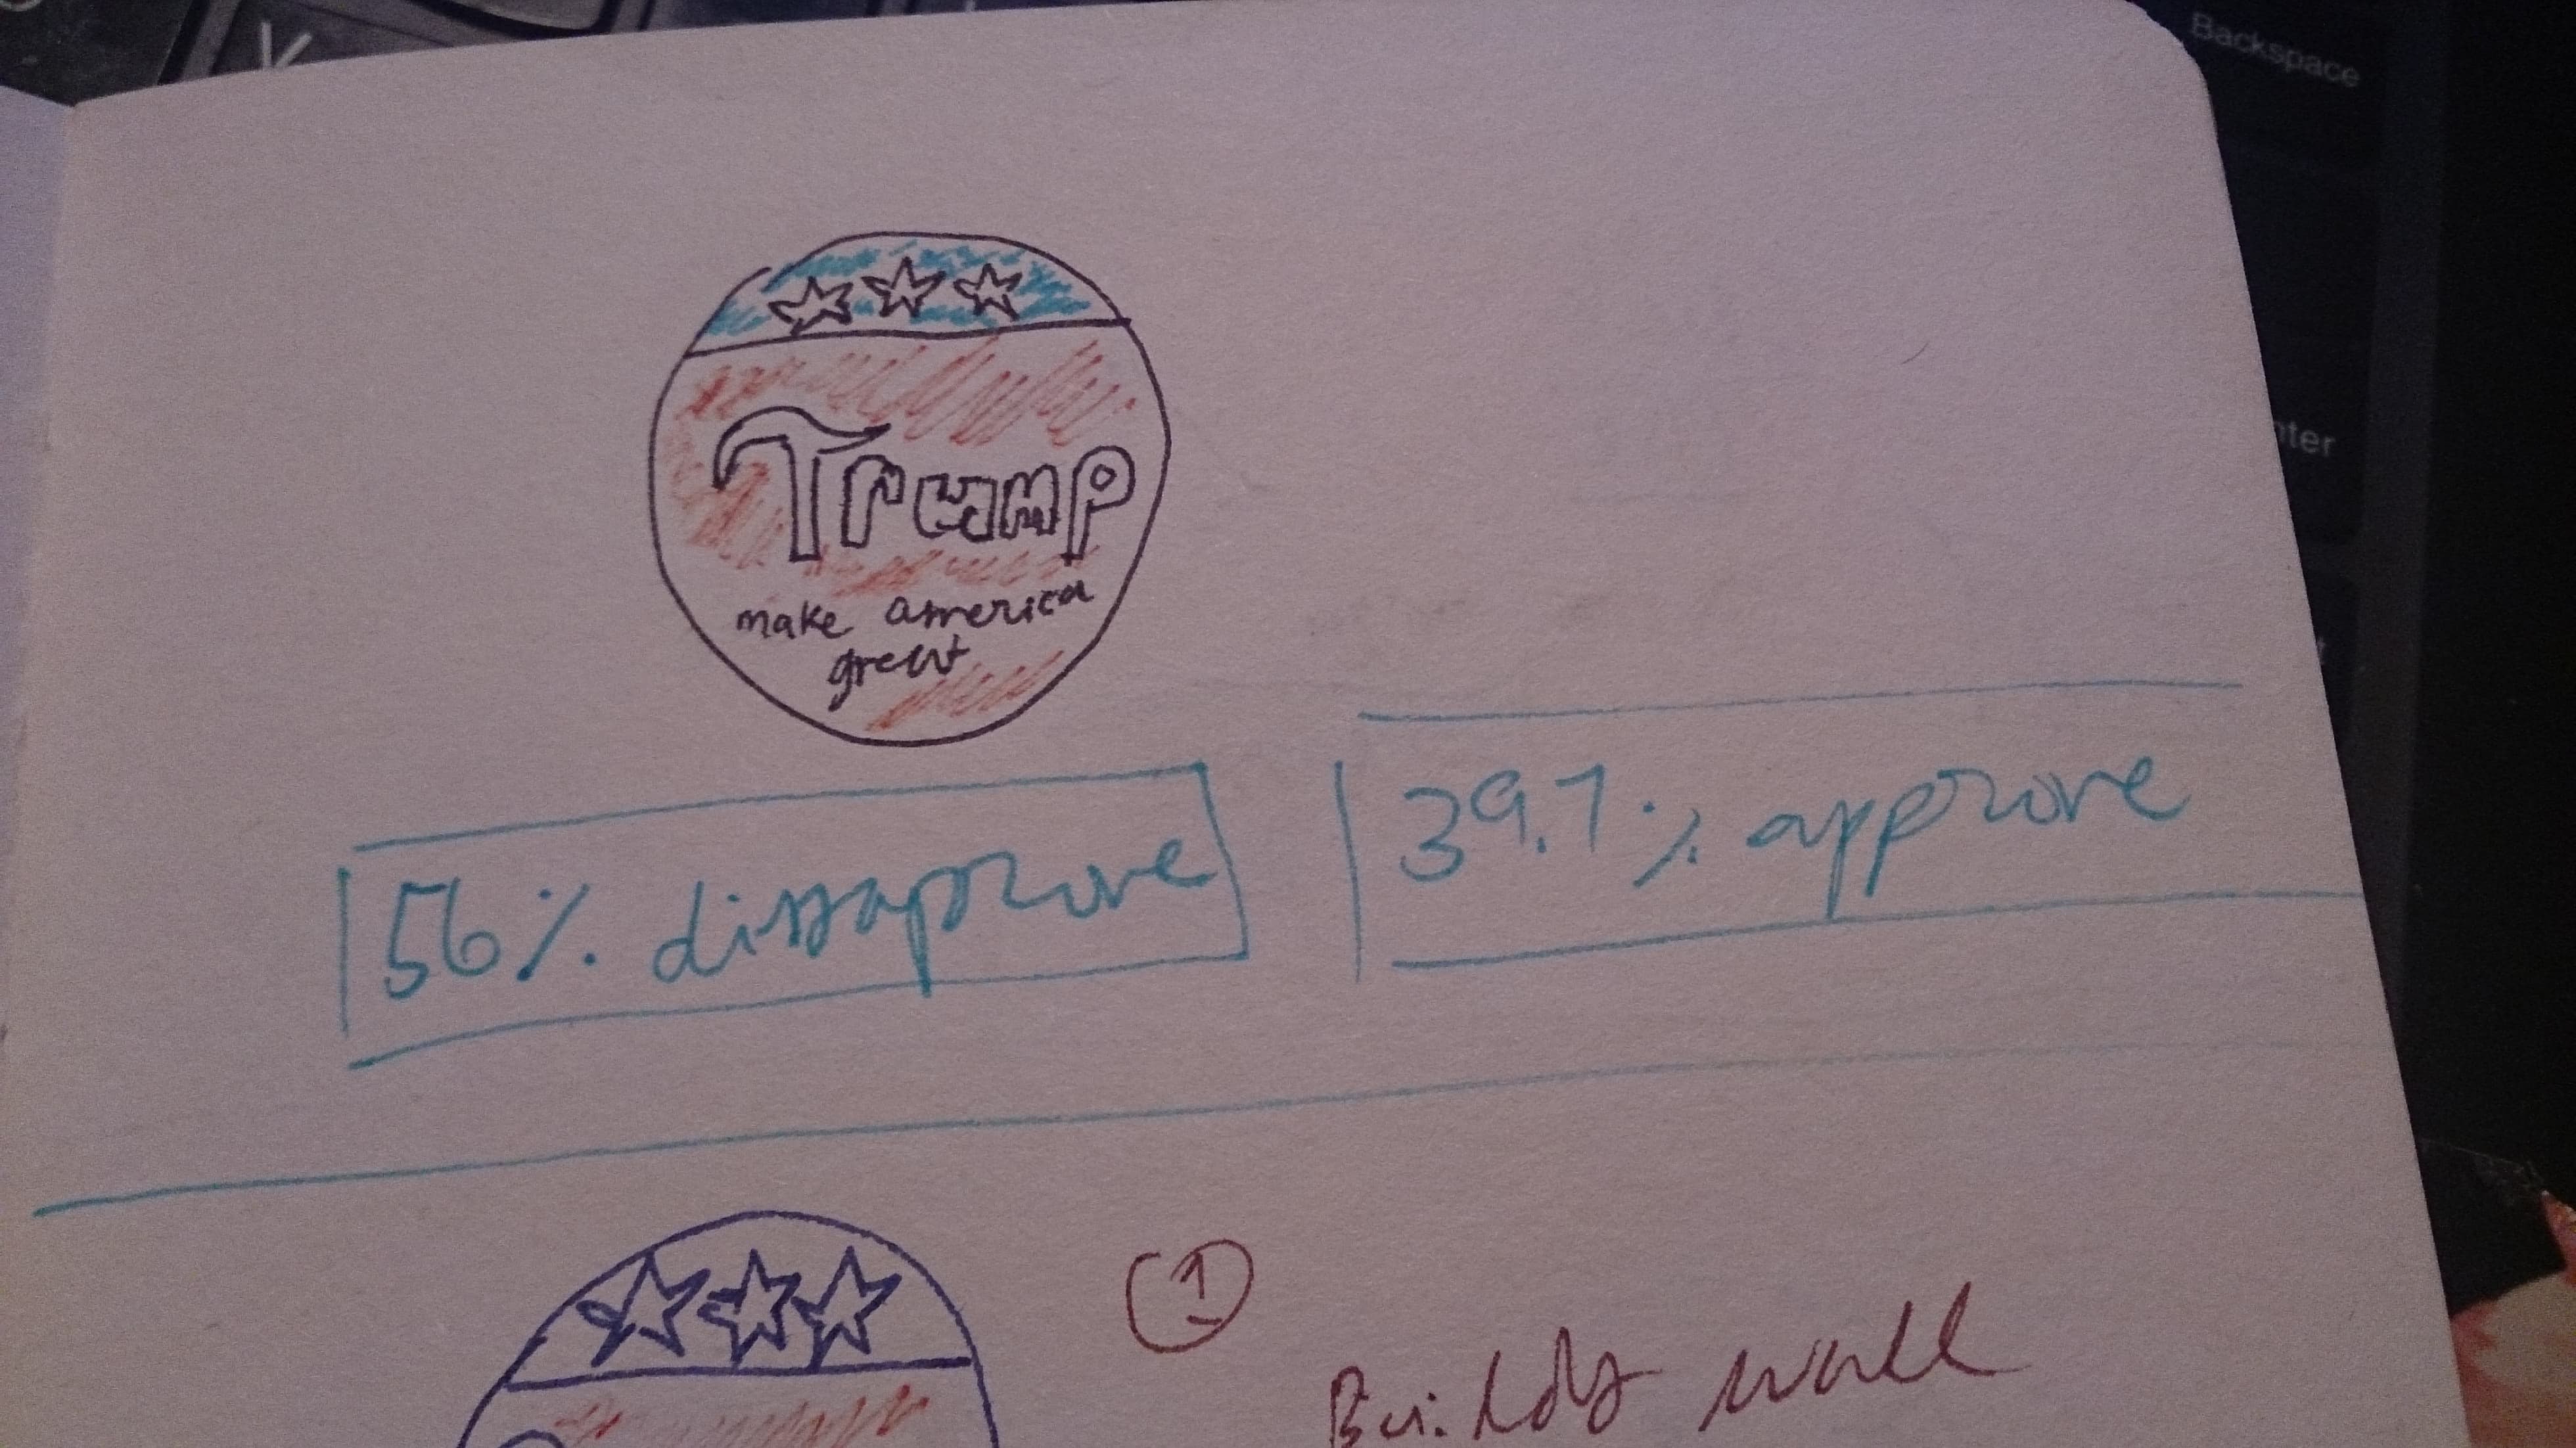 Y
Backspace
nter
Trump
make america
great
56% dissaprove
39.7% approve
1
Builds wall